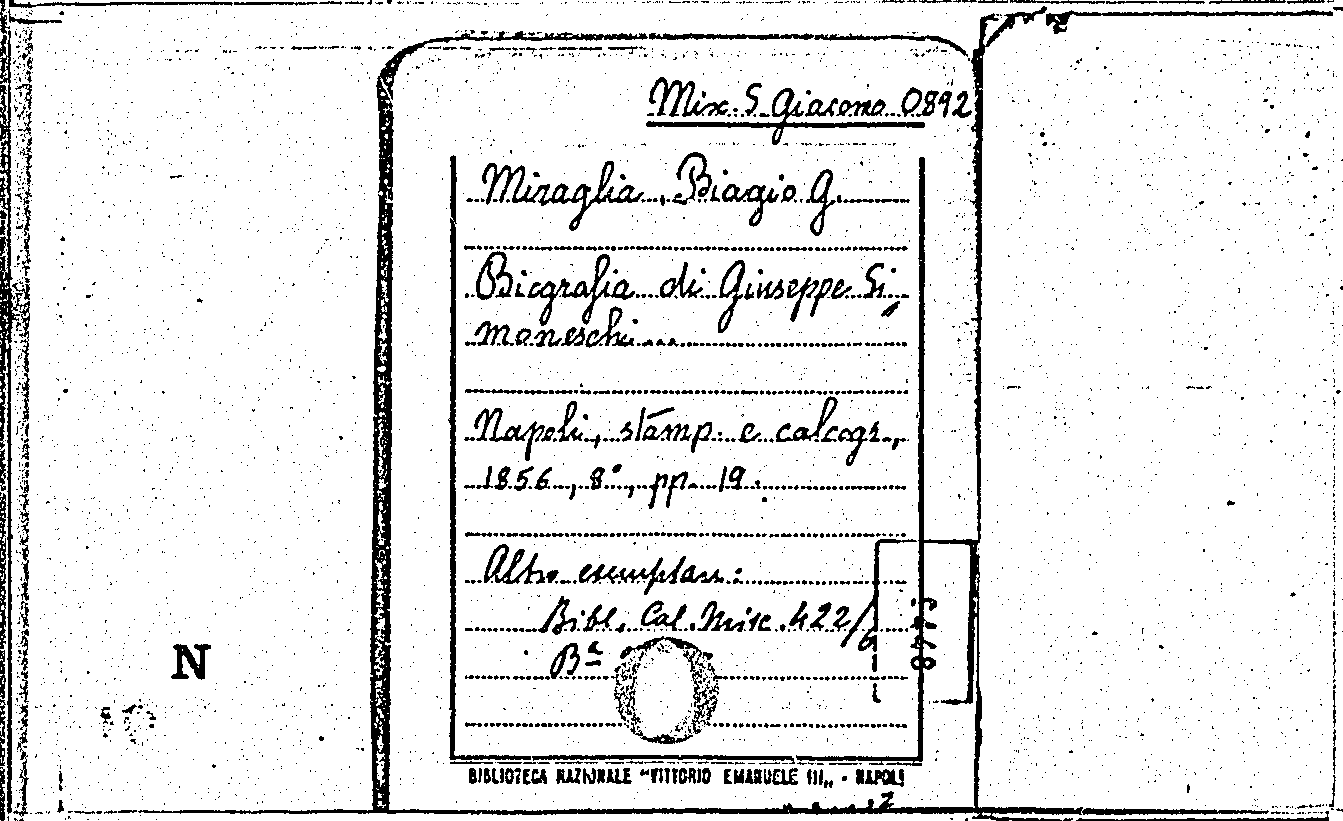 Misc. S. Giacomo 0892
Miraglia, Biagio G.
Biografia di Giuseppe Si
moneschi...
Napoli, stamp. e calcogr.,
1856, 8°, pp. 19.
Altro esemplare:
Bibl. Cal. Misc. 422/6
Bª
N
BIBLIOTECA NAZIONALE "VITTORIO EMANUELE III„ - NAPOLI